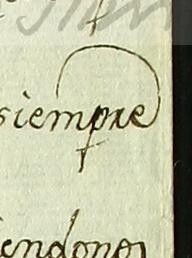 siempre
iendonos